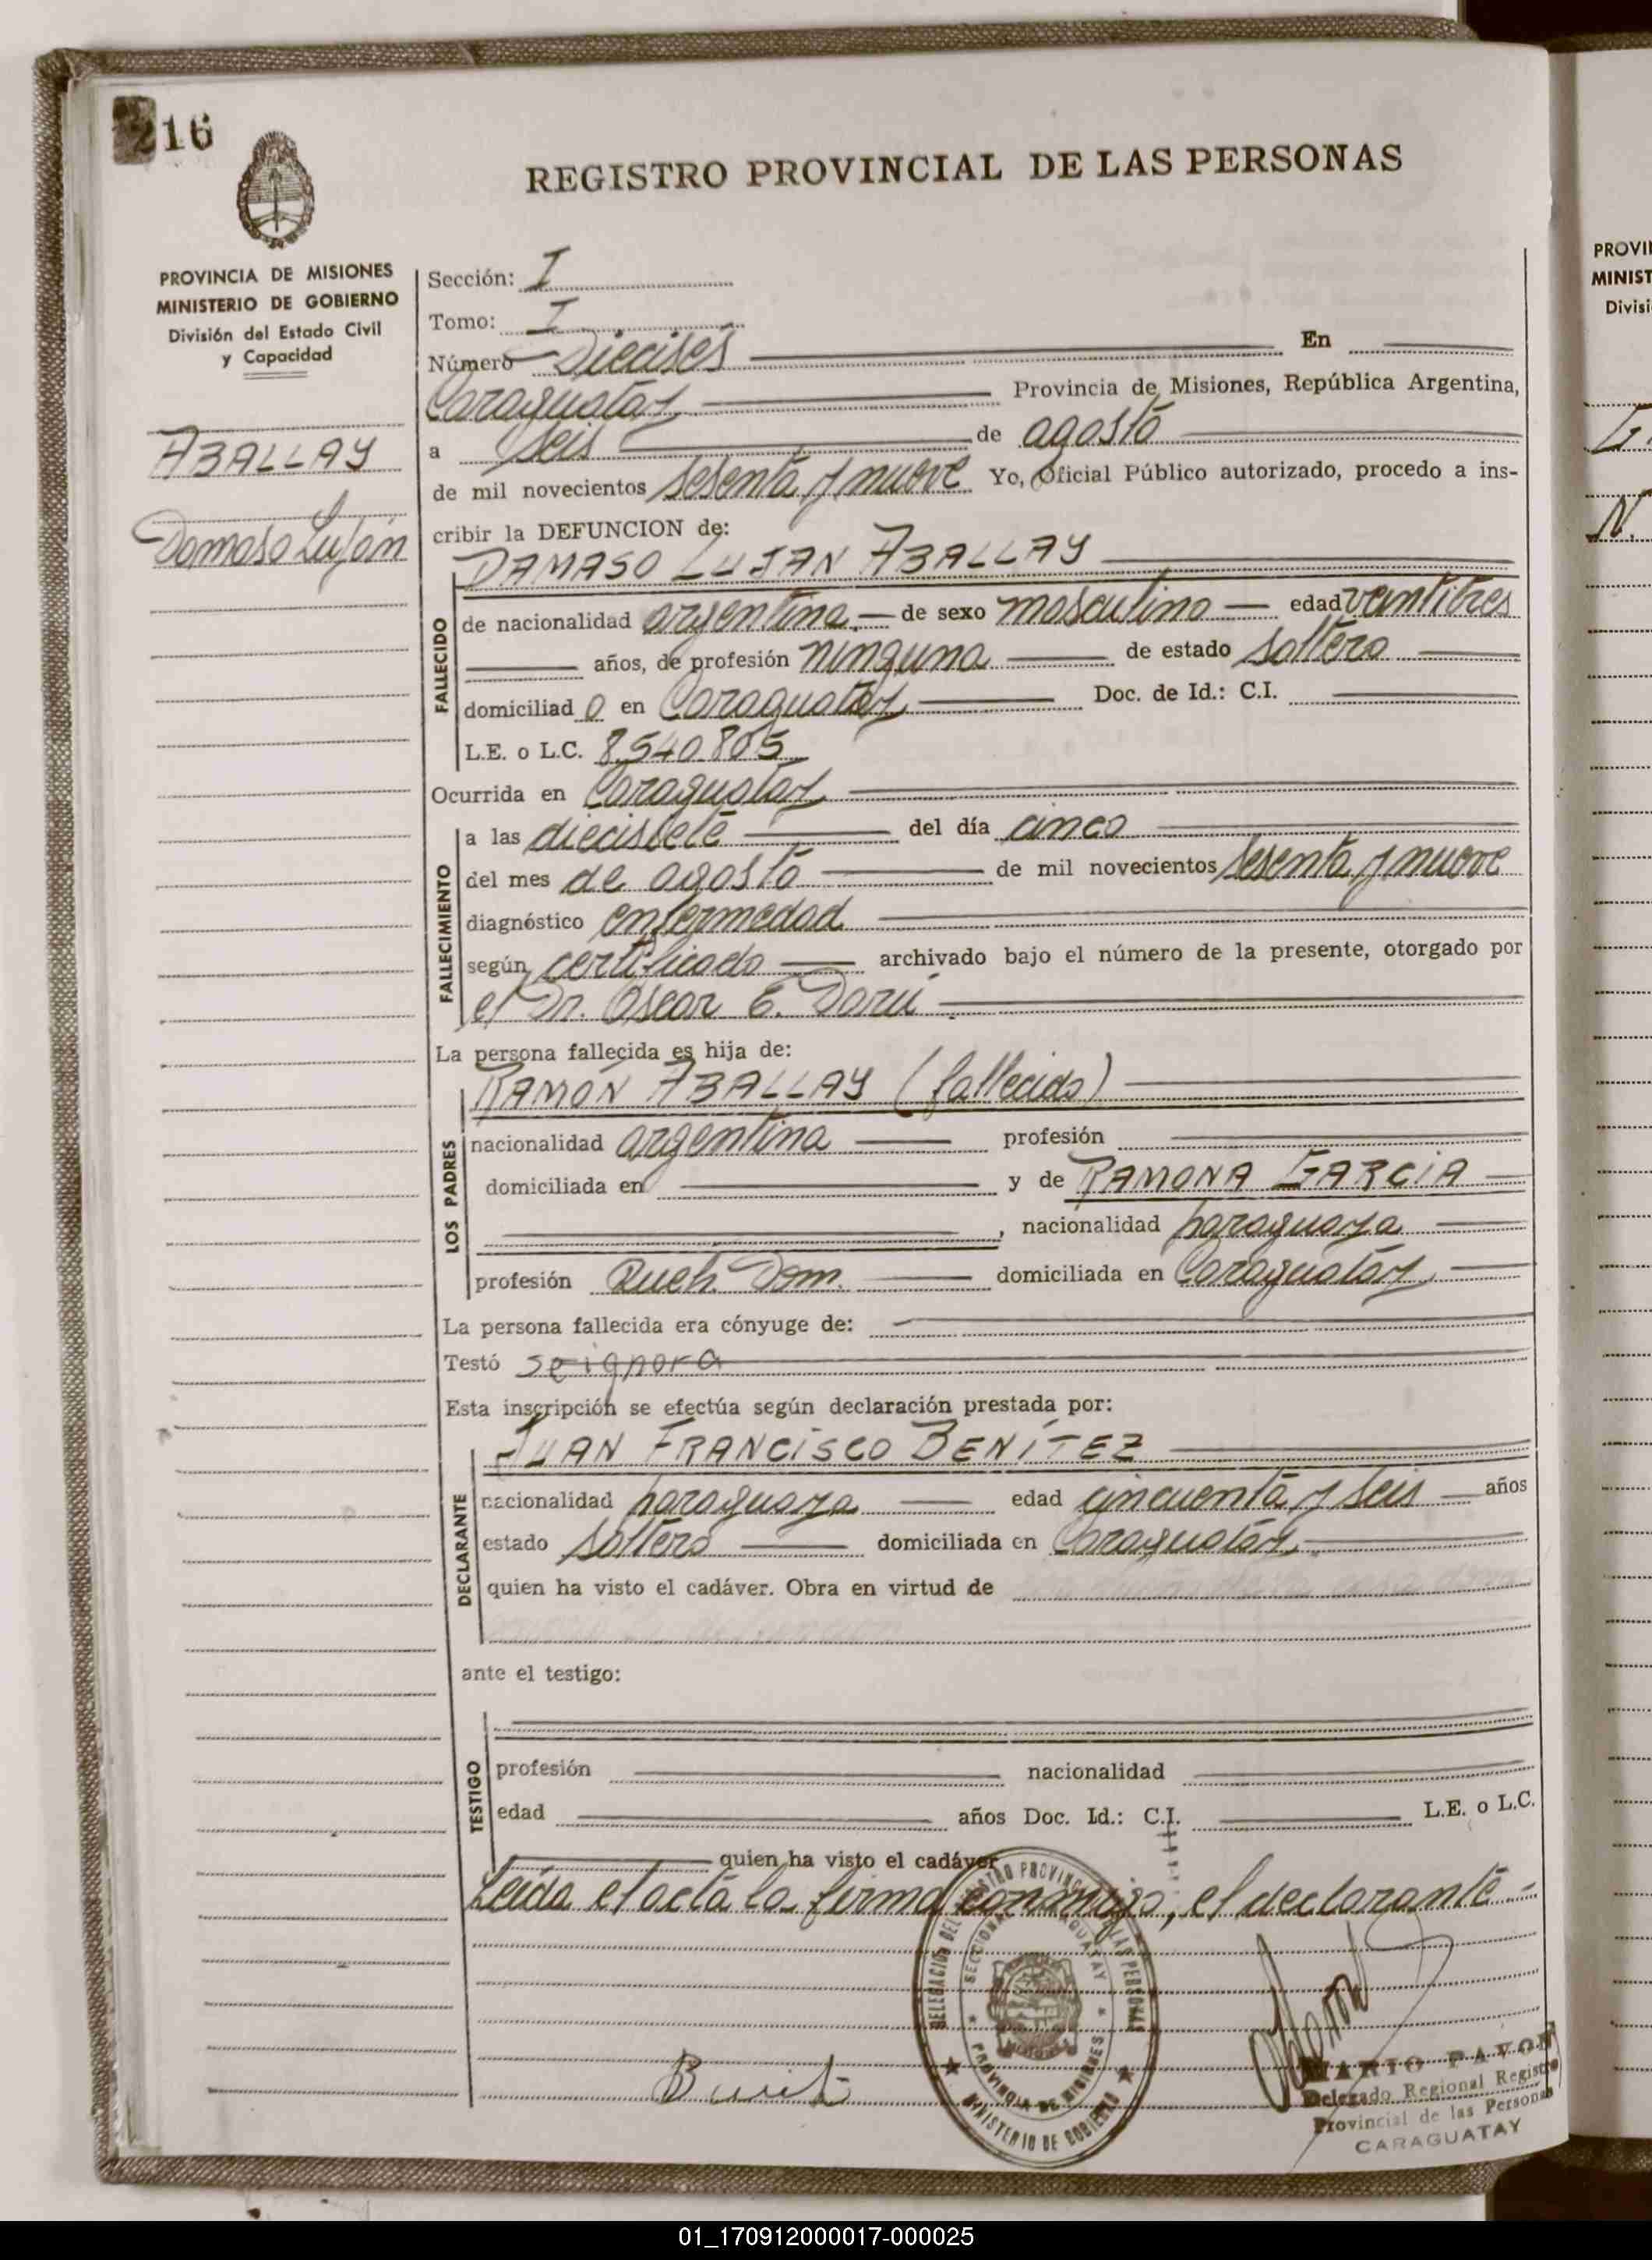 216
REGISTRO PROVINCIAL DE LAS PERSONAS
PROVINCIA DE MISIONES
MINISTERIO DE GOBIERNO
División del Estado Civil
y Capacidad
ABALLAY
Damaso Luján
Sección: I
Tomo: I
Número Dieciséis En
Caraguatay Provincia de Misiones, República Argentina,
a seis de agosto
de mil novecientos sesenta y nueve Yo, Oficial Público autorizado, procedo a ins-
cribir la DEFUNCION de:
DAMASO LUJAN ABALLAY
FALLECIDO
de nacionalidad argentina.— de sexo masculino — edad veintitres
años, de profesión ninguna de estado soltero
domiciliad o en Caraguatay Doc. de Id.: C.I.
L.E. o L.C. 8.540.805
Ocurrida en Caraguatay
FALLECIMIENTO
a las diecisiete del día cinco
del mes de agosto de mil novecientos sesenta y nueve
diagnóstico enfermedad
según certificado archivado bajo el número de la presente, otorgado por
el Dr. Oscar E. Darú
La persona fallecida es hija de:
LOS PADRES
RAMÓN ABALLAY (fallecido)
nacionalidad argentina profesión
domiciliada en y de RAMONA GARCIA
, nacionalidad paraguaya
profesión Queh. Dom. domiciliada en Caraguatay
La persona fallecida era cónyuge de:
Testó se ignora
Esta inscripción se efectúa según declaración prestada por:
DECLARANTE
JUAN FRANCISCO BENÍTEZ
nacionalidad paraguaya edad cincuenta y seis años
estado soltero domiciliada en Caraguatay
quien ha visto el cadáver. Obra en virtud de
ante el testigo:
TESTIGO
profesión nacionalidad
edad años Doc. Id.: C.I. L.E. o L.C.
quien ha visto el cadáver
Leída el acta la firma conmigo, el declarante.-
DELEGACION DEL REGISTRO PROVINCIAL DE LAS PERSONAS
SECCIONAL CARAGUATAY
PROVINCIA DE MISIONES
MINISTERIO DE GOBIERNO
MARIO PAVON
Delegado Regional Registro
Provincial de las Personas
CARAGUATAY
PROVI
MINIST
Divisi
01_170912000017-000025